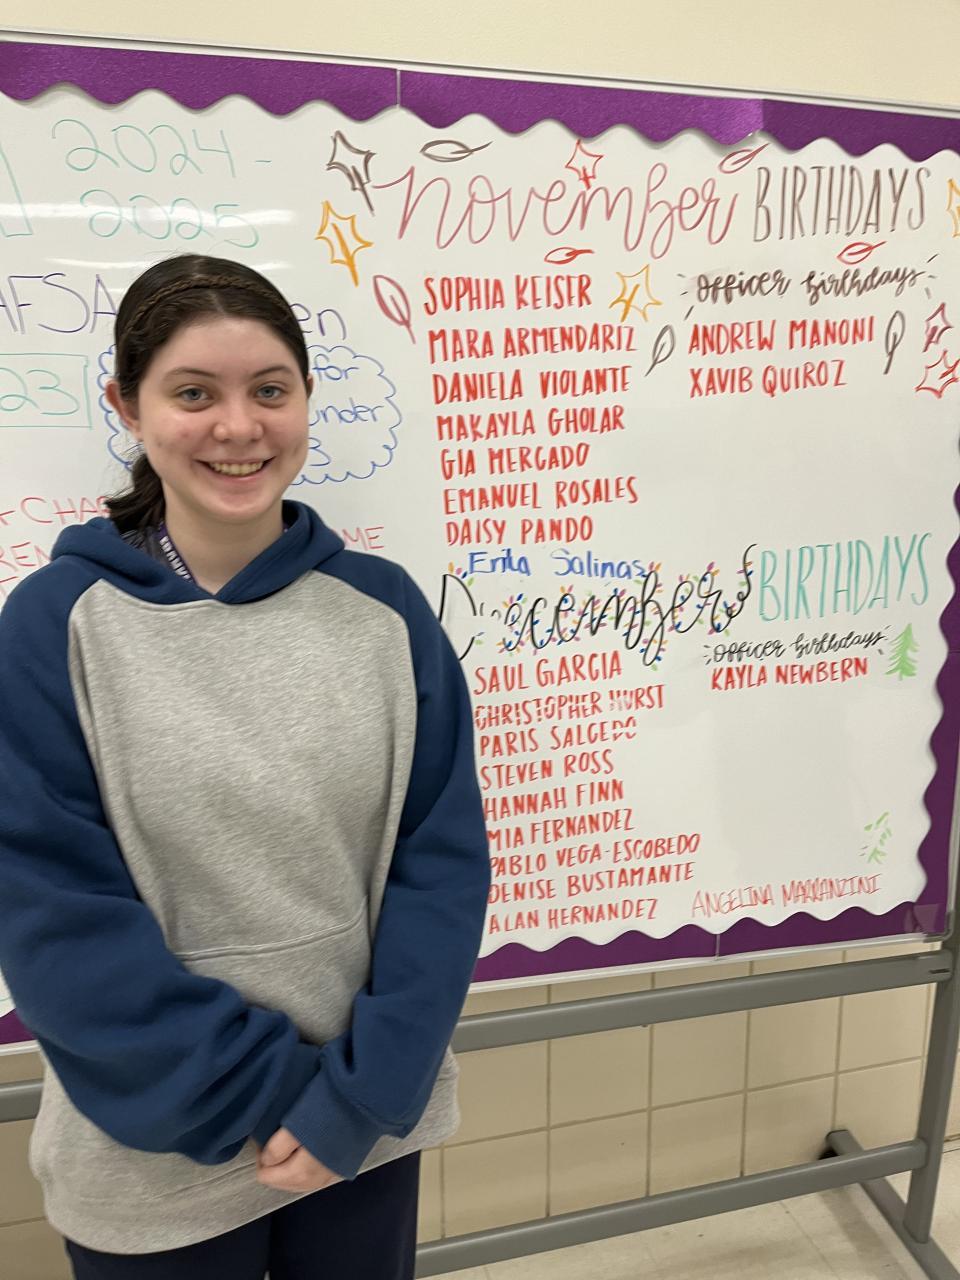 2024-
2025
AFSA
en
23
for
under
3
CHA
REM
ME
november BIRTHDAYS
SOPHIA KEISER
MARA ARMENDARIZ
DANIELA VIOLANTE
MAKAYLA GHOLAR
GIA MERCADO
EMANUEL ROSALES
DAISY PANDO
Erita Salinas
officer birthdays
ANDREW MANONI
XAVIB QUIROZ
December BIRTHDAYS
officer birthdays
KAYLA NEWBERN
SAUL GARCIA
CHRISTOPHER HURST
PARIS SALCEDO
STEVEN ROSS
HANNAH FINN
MIA FERNANDEZ
PABLO VEGA-ESCOBEDO
DENISE BUSTAMANTE
ALAN HERNANDEZ
ANGELINA MARRANZINI